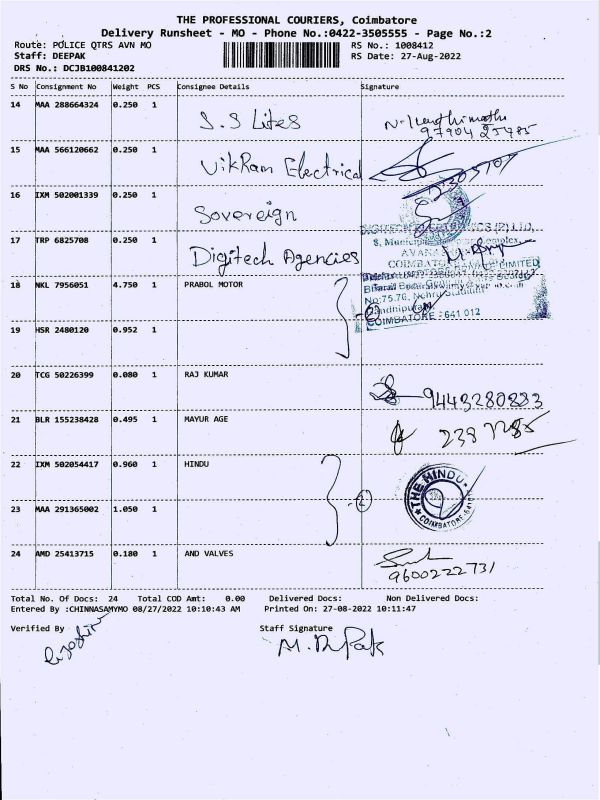 THE PROFESSIONAL COURIERS, Coimbatore
Delivery Runsheet - MO - Phone No.:0422-3505555 - Page No.:2
Route: POLICE QTRS AVN MO RS No.: 1008412
Staff: DEEPAK RS Date: 27-Aug-2022
DRS No.: DCJB100841202
S No Consignment No Weight PCS Consignee Details Signature
14 MAA 288664324 0.250 1 S.S Lites
97904 25485
15 MAA 566120662 0.250 1 Vikram Electrical
16 IXM 502001339 0.250 1 Sovereign
17 TRP 6825708 0.250 1 Digitech Agencies
18 NKL 7956051 4.750 1 PRABOL MOTOR
COIMBATORE - 641 012
19 HSR 2480120 0.952 1
20 TCG 50226399 0.080 1 RAJ KUMAR 9443280883
21 BLR 155238428 0.495 1 MAYUR AGE
22 IXM 502054417 0.960 1 HINDU
THE HINDU
COIMBATORE
23 MAA 291365002 1.050 1
24 AMD 25413715 0.180 1 AND VALVES
9600222731
Total No. Of Docs: 24 Total COD Amt: 0.00 Delivered Docs: Non Delivered Docs:
Entered By :CHINNASAMYMO 08/27/2022 10:10:43 AM Printed On: 27-08-2022 10:11:47
Verified By Staff Signature